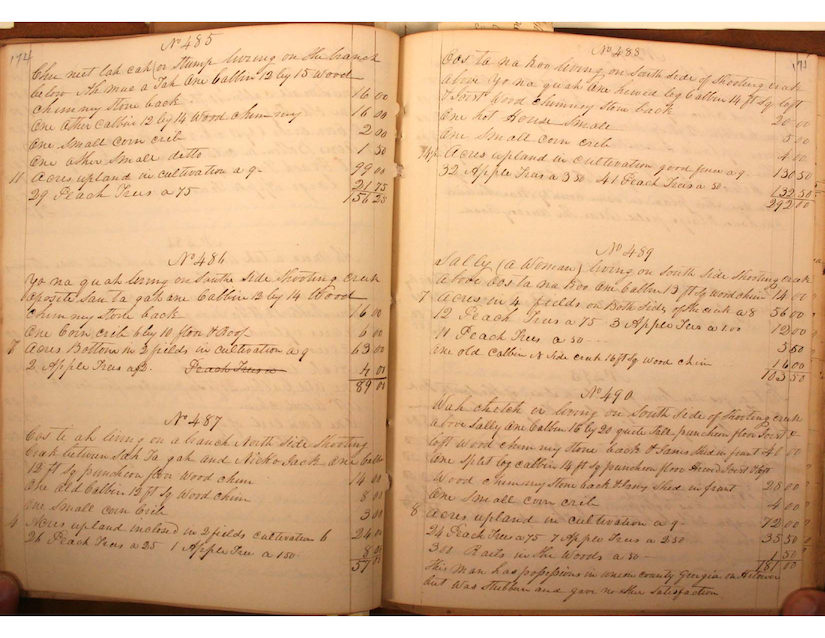 174
No 485
Chu niet lah cah (or Stump living on the branch
below Ah mac a Tah One Cabbin 12 by 15 Wood
chimny Stone back 16 00
One Other Cabbin 12 by 14 Wood chimny 16 00
One Small corn crib 2 00
One other Small detto 1 50
11 Acres upland in cultivation a 9 - 99 00
29 Peach Trees a 75 21 75
156 25
No 486
Yo na guah living on South Side Shooting creek
Oposite Sau ta gah one Cabbin 12 by 14 Wood
chimny Stone back 16 00
One Corn crib 6 by 10 floor & Roof 6 00
7 Acres Bottom in 2 fields in cultivation a 9 63 00
2 Apple Trees a $2 - Peach Trees a 4 00
89 00
No 487
Cos te ah living on a branch North Side Shooting
Creak between Tah Ta gah and Nick o Jack One Cabbin
12 ft Sq puncheon floor Wood chim 14 00
One old Cabbin 12 ft Sq Wood chim 8 00
One Small corn Crib 3 00
4 Acres upland inclosed in 2 fields cultivation 6 24 00
26 Peach Trees a 25 1 Apple Tree a 1 50 8 00
57 00
175
No 488
Cos ta na Roo living on South Side of Shooting creek
above Yo na guah One hewed log Cabbin 14 ft Sq loft
& Joist Wood chimny Stone back 20 00
One hot House Smale 5 00
One Small corn crib 4 00
Acres upland in cultivation good fence a 9 - 130 50
32 Apple Trees a 3 50 41 Peach Trees a 50 - 132 50
292 00
No 489
Sally (a Woman) living on South Side Shooting creek
above Cos ta na Roo One Cabbin 13 ft Sq Wood chim 14 00
7 Acres in 4 fields on Both Sides of the creek a 8 56 00
12 Peach Trees a 75 3 Apple Trees a 1 00 12 00
11 Peach Trees a 50 - 5 50
one old Cabbin N Side creek 16 ft Sq Wood chim 16 00
103 50
No 490
Wah chutch er living on South Side of Shooting creek
above Sally One Cabbin 16 by 20 quite Tall puncheon floor Joist &
loft Wood chimny Stone back & Same Shed in front 40 00
One Split log Cabbin 14 ft Sq puncheon floor Hewd Joist & loft
Wood chimny Stone back & long Shed in front 28 00
One Small corn crib 4 00
8 Acres upland in cultivation a 9 - 72 00
24 Peach Trees a 75 7 Apple Trees a 2 50 35 50
300 Rails in the Woods a 50 - 1 50
181 00
This Man has professions in union County Georgia on
but was Stubborn and gave no other Satisfaction